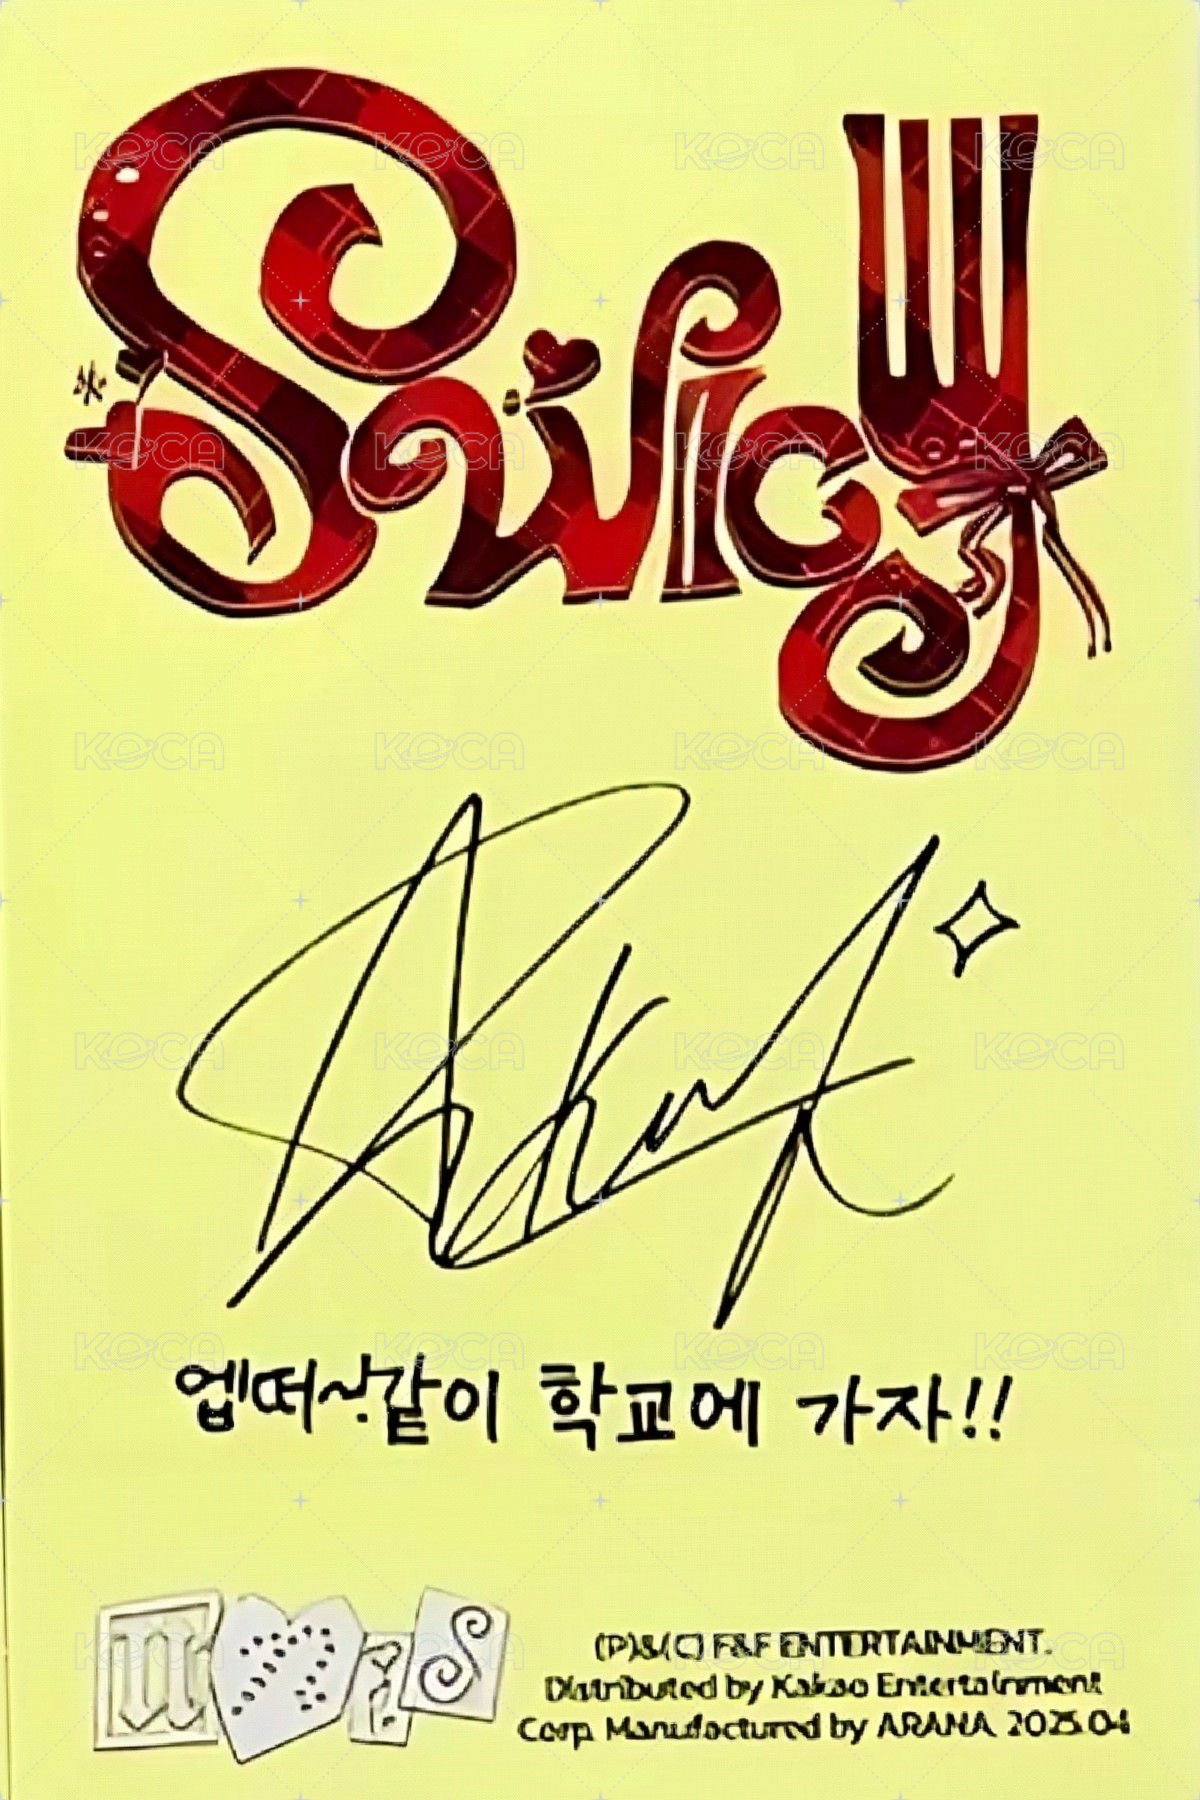 Swicy
엡떠사같이 학교에 가자!!
uniS
(P)&(C) F&F ENTERTAINMENT.
Distributed by Kakao Entertainment
Corp. Manufactured by ARANA. 2025.04
KOCA